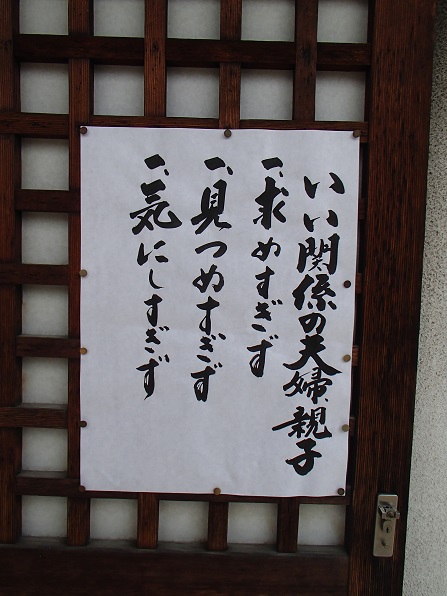 いい関係の夫婦、親子
一、求めすぎず
一、見つめすぎず
一、気にしすぎず